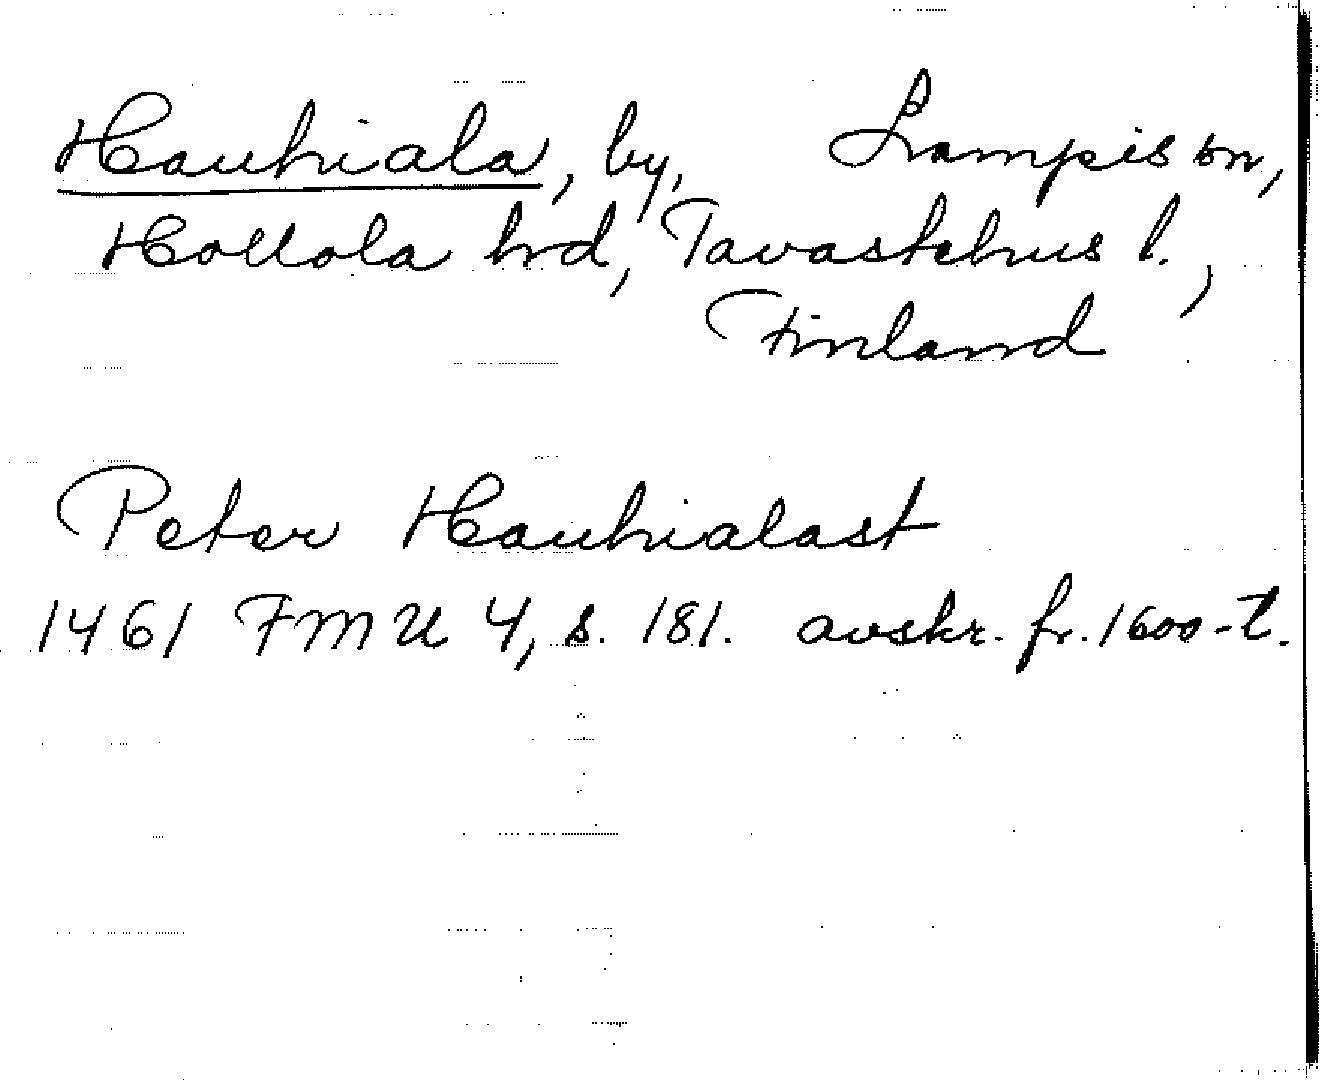 Hauhiala, by, Lampis sn,
Hollola hrd, Tavastehus l.,
Finland
Peter Hauhialast
1461 FMU 4, s. 181. avskr. fr. 1600-t.